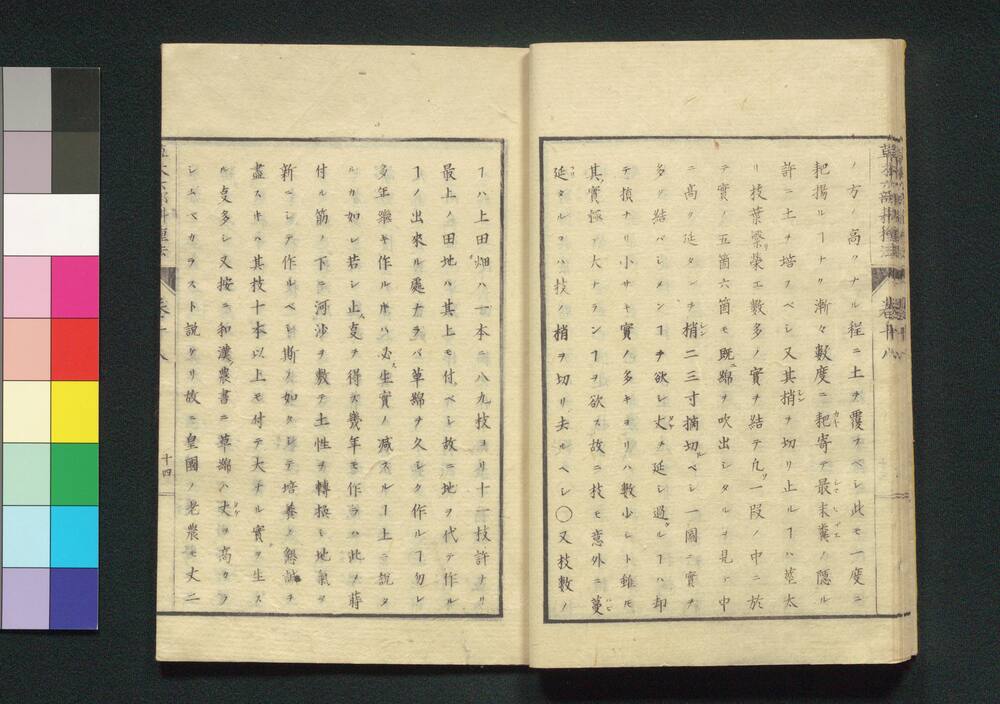 ノ方高クナル程ニ土ヲ覆フベシ此モ一度ニ
耙揚ルヿナク漸々數度ニ耙寄テ最末糞ノ隱ル
許ニ土ヲ培フベシ又其梢ヲ切リ止ルヿハ莖太
リ枝葉繁榮エ數多ノ實ヲ結テ凡ソ一段ノ中ニ於
テ實ノ五箇六箇モ既ニ綿ヲ吹出シタルヲ見ヿ中
ニ高ク延タンヲ梢二三寸摘切ルベシ一園ニ實ヲ
多ク結バシメンヿヲ欲シ丈ヲ延シ過スヿハ却
テ損ナリ小サキ實ノ多キヨリハ數少シト雖モ
其實極テ大ナランヿヲ欲ス故ニ枝モ意外ニ蔓
延タルヿハ枝ノ梢ヲ切リ去ルヘシ〇又枝數ノ
ヿハ上田畑ハ一本ニ八九枝ヨリ十一枝許ナリ
最上ノ田地ハ其上モ付ベシ故ニ地ヲ代テ作ル
ヿノ出來ル處ナラバ草綿ヲ久シク作ルヿ勿レ
多年繼キ作ルキハ必ス生實ノ減スルヿ上ニ説タ
ルカ如シ若シ止ヿヲ得ス幾年モ作ラハ此ノ蒔
付ル筋ノ下ニ河沙ヲ敷テ土性ヲ轉換シ地氣ヲ
新ニシテ作ルベシ斯ノ如クシテ培養ノ懇誠ヲ
盡スキハ其枝十本以上モ付テ大ナル實ヲ生ス
ル支多シ又按ニ和漢ノ農書ニ草綿ハ丈ヲ高カラ
シムベカラスト説ケリ故ニ皇國ノ老農モ丈二
草木六部耕種法
卷十八
十四